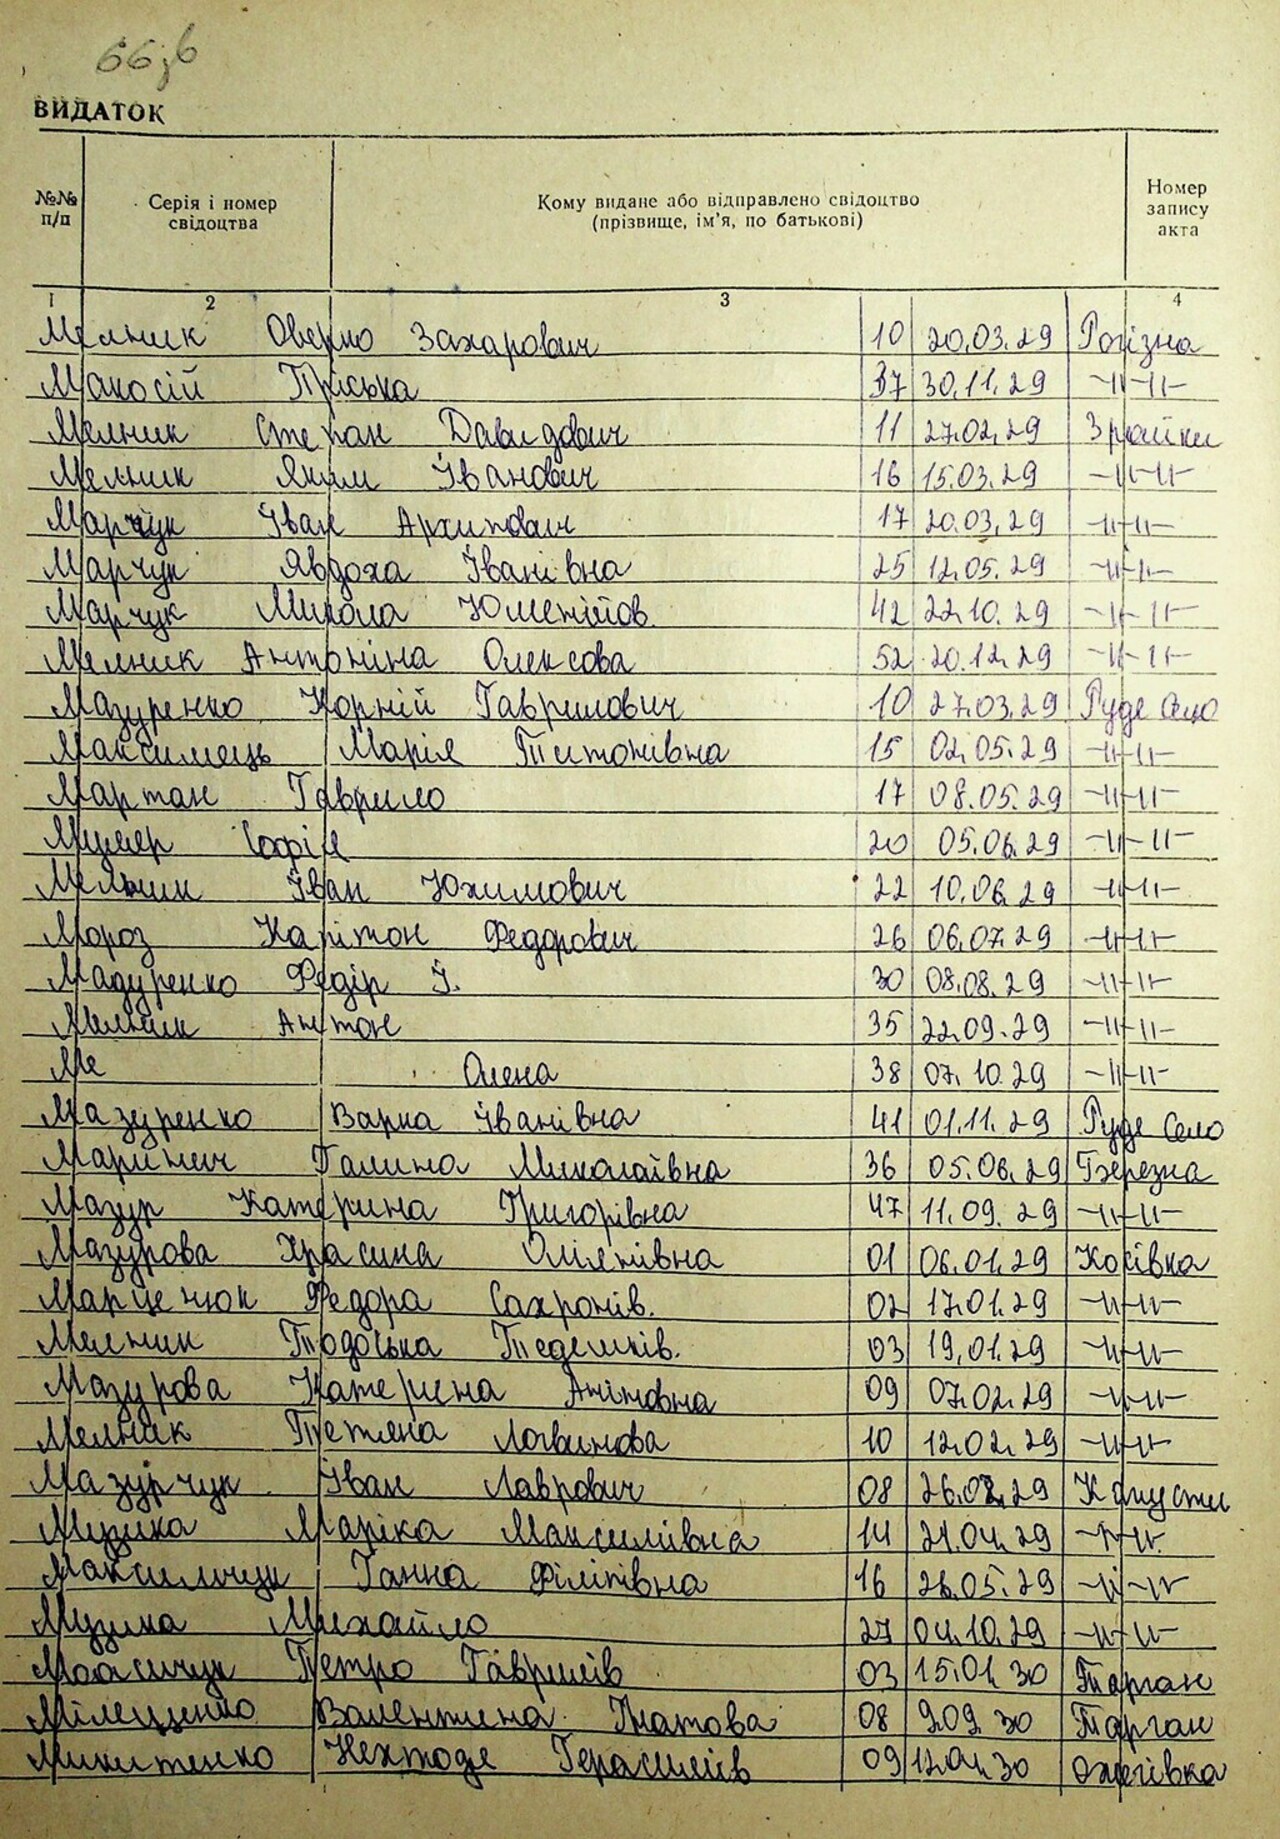 66зв
ВИДАТОК
№№ п/п
Серія і номер свідоцтва
Кому видане або відправлено свідоцтво (прізвище, ім'я, по батькові)
Номер запису акта
1 2 3 4
Мелник Оверко Захарович 10 20.03.29 Рогізна
Макосій Пріська 37 30.11.29 -11-11-
Мелник Степан Давидович 11 27.02.29 Зрайки
Мелник Яким Іванович 16 15.03.29 -11-11-
Марчук Іван Архипович 17 20.03.29 -11-11-
Марчук Явдоха Іванівна 25 12.05.29 -11-11-
Марчук Микола 42 22.10.29 -11-11-
Мелник Антоніна Олексова 52 20.12.29 -11-11-
Мазуренко Корній Гаврилович 10 27.03.29 Руде Село
Максимець Марія Титонівна 15 02.05.29 -11-11-
Мартан Гаврило 17 08.05.29 -11-11-
Софія 20 05.06.29 -11-11-
Мельник Іван Юхимович 22 10.06.29 -11-11-
Мороз Капітон Федорович 26 06.07.29 -11-11-
Мадуренко Федір І. 30 08.08.29 -11-11-
Мелник Антон 35 22.09.29 -11-11-
Ме Олена 38 07.10.29 -11-11-
Мазуренко Варка Іванівна 41 01.11.29 Руде Село
Маринич Галина Миколаївна 36 05.06.29 Березна
Мазур Катерина Григорівна 47 11.09.29 -11-11-
Мазурова 01 06.01.29 Косівка
Марценюк Федора Сахронів. 02 17.01.29 -11-11-
Мелник Тодоська 03 19.01.29 -11-11-
Мазурова Катерина 09 07.02.29 -11-11-
Мелник Тетяна Логвинова 10 12.02.29 -11-11-
Мазурчук Іван Лаврович 08 Капусти
Музика Маріка Максимівна 14 21.04.29 -11-11-
Максимчук Ганна Філіпівна 16 26.05.29 -11-11-
Музика Михайло 27 04.10.29 -11-11-
Петро Гаврилів 03 15.01.30 Тарган
Мілещенко Валентина Гнатова 08 Тарган
Микитенко Герасимів 09 12.04.30 Ожегівка